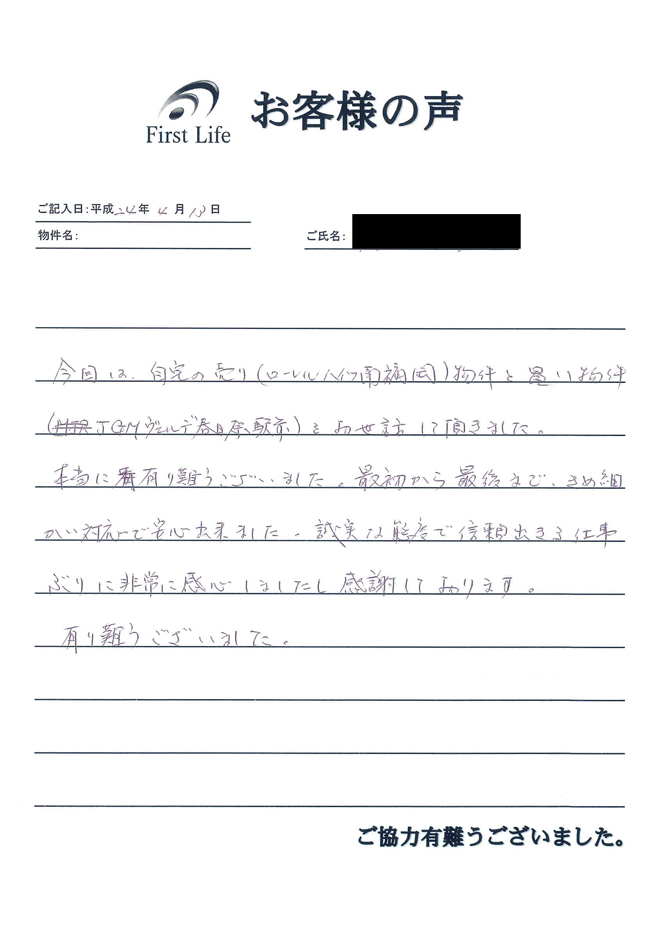 First Life
お客様の声
ご記入日:平成24年 4月13日
物件名:
ご氏名:
今回は、自宅の売り(ローレルハイツ南福岡)物件と買い物件
(JGMヴェルデ春日原駅前)をお世話して頂きました。
本当に有り難うございました。最初から最後まで、きめ細
かい対応で安心出来ました。誠実な態度で信頼出きる仕事
ぶりに非常に感心しましたし感謝しております。
有り難うございました。
ご協力有難うございました。